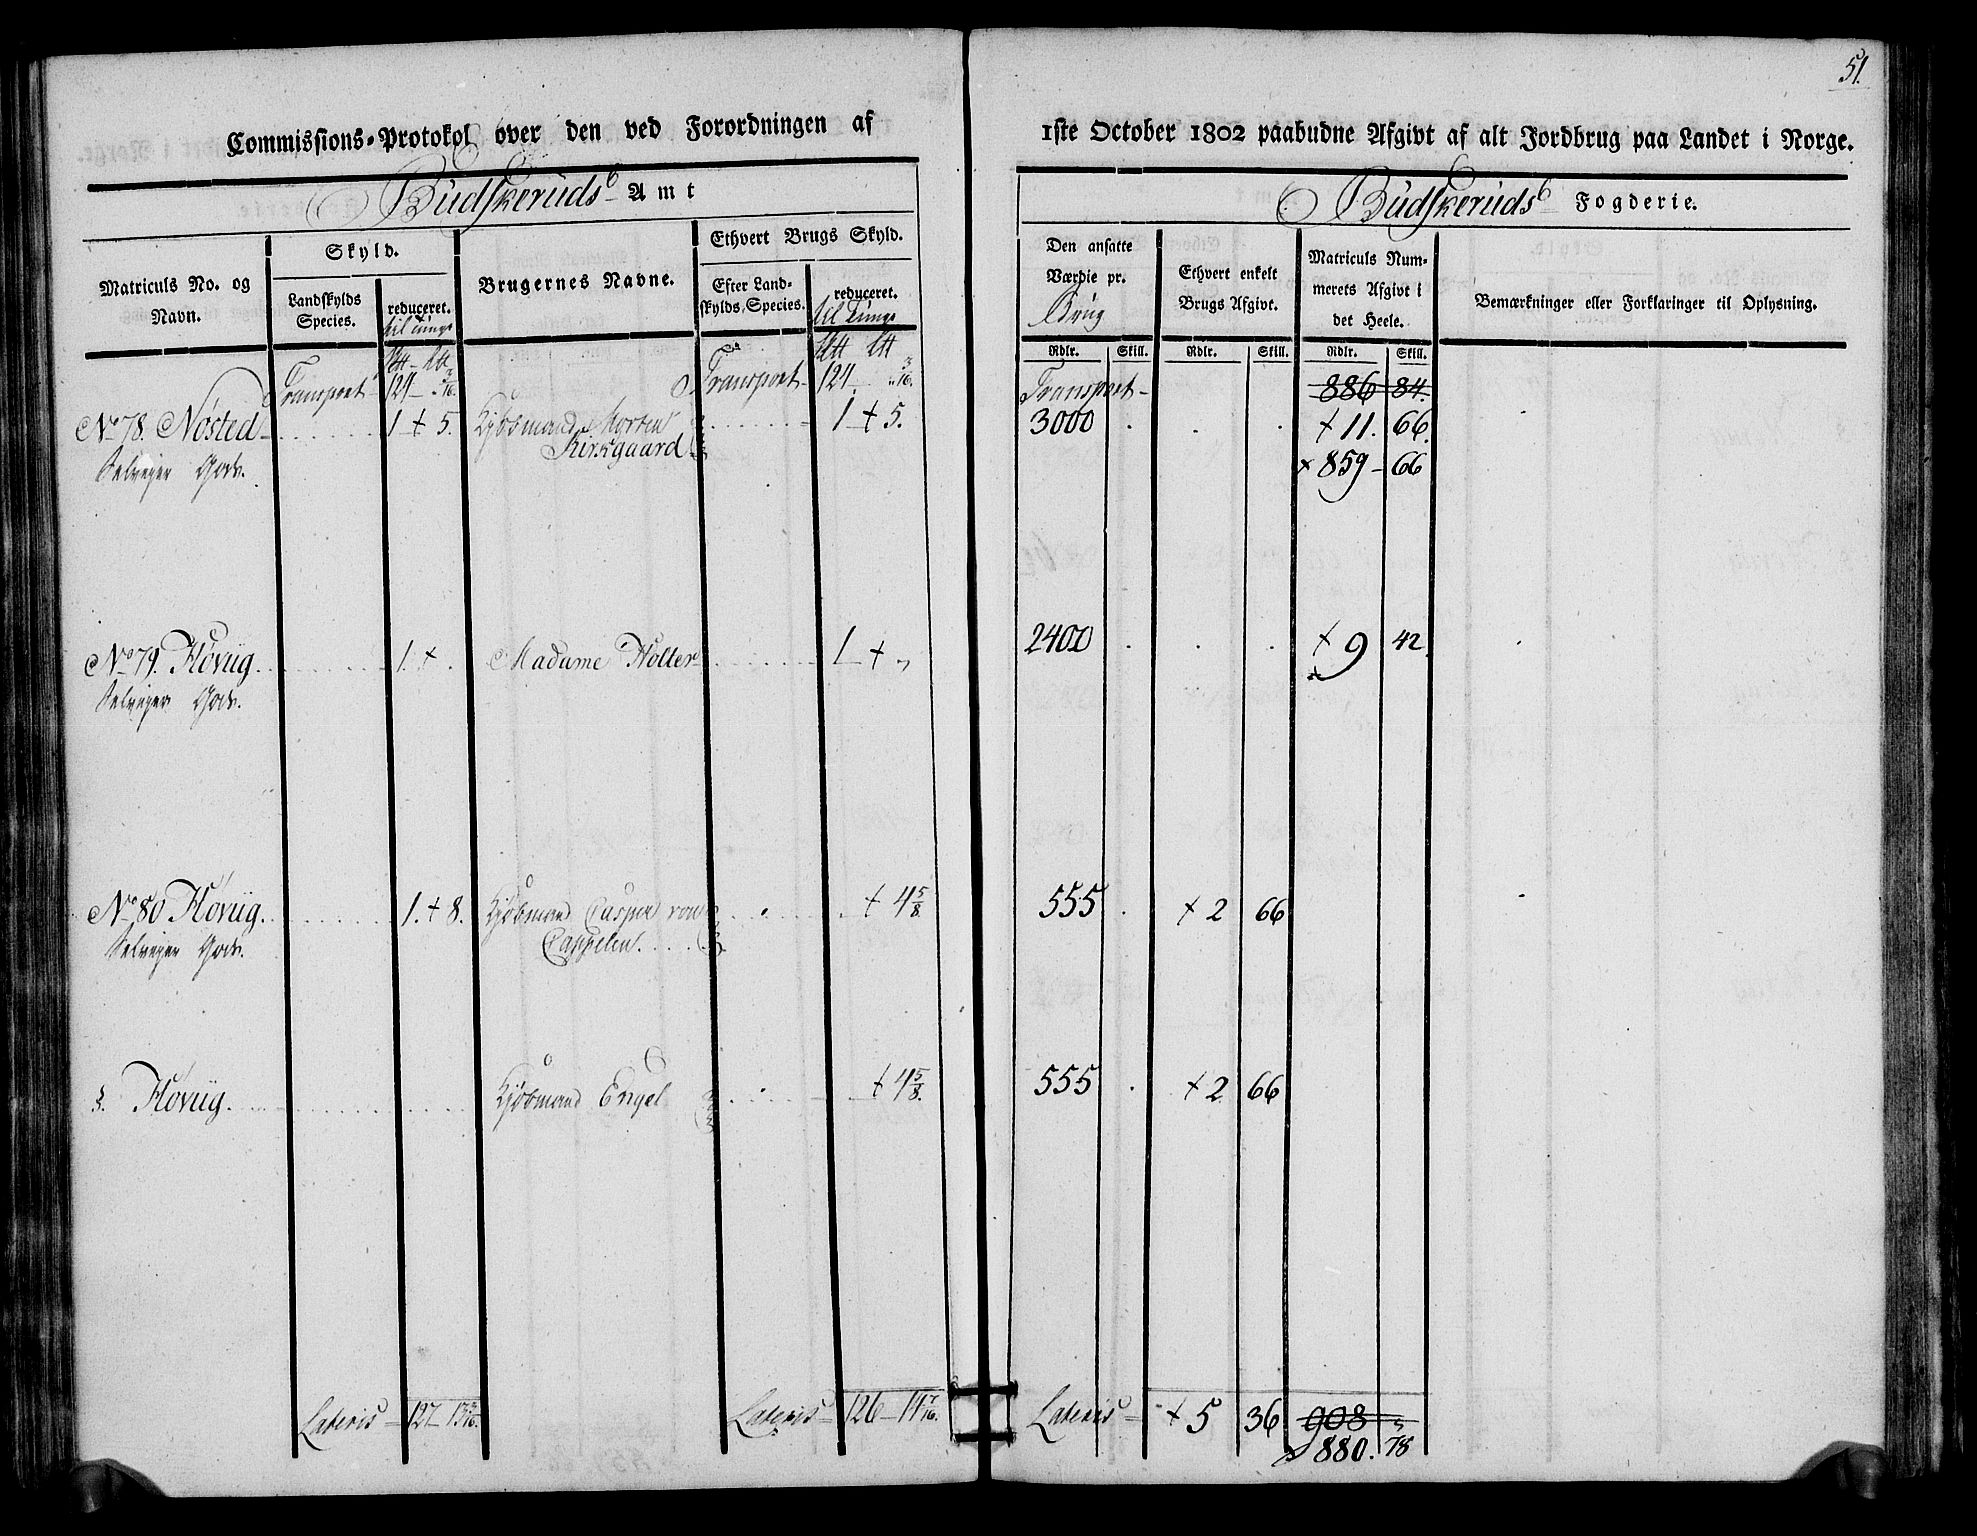 51.
Commissions-Protokol over den ved Forordningen af
1ste October 1802 paabudne Afgivt af alt Jordbrug paa Landet i Norge.
Budskeruds Amt
Budskeruds Fogderie.
Matriculs No. og Navn.
Skyld.
Landskylds Species.
reduceret.
til Tunge
Brugernes Navne.
Ethvert Brugs Skyld.
Efter Landskylds Species.
reduceret.
til Tunge
Den ansatte Værdie pr.
Brug
Ethvert enkelt Brugs Afgivt.
Matriculs Nummerets Afgivt i det Heele.
Bemærkninger eller Forklaringer til Oplysning.
Rdlr. Skill. Rdlr. Skill. Rdlr. Skill.
Transport 124 - „ 3/16. Transport 124 „ 3/16. Transport 886 84.
No 78. Nøsted 1 + 5. Kjøbmand Morten 1 + 5. 3000 + 11. 66.
Selvejer Gods. Kirkgaard + 859 - 66
No 79. Høvüg. 1. + . Madame Holter 1 + „ 2400 + 9 42.
Selvejer Gods.
No 80 Høvüg. 1. + 8. Kjøbmand Casper von + 4 5/8. 555 + 2 66
Selvejer Gods. Cappelen.
Høvüg. Kjøbmand Engel + 4 5/8. 555 + 2 66
Lateris 127 - 13 3/16. Lateris 126 - 14 7/16. Lateris + 5 36 908
880. 78